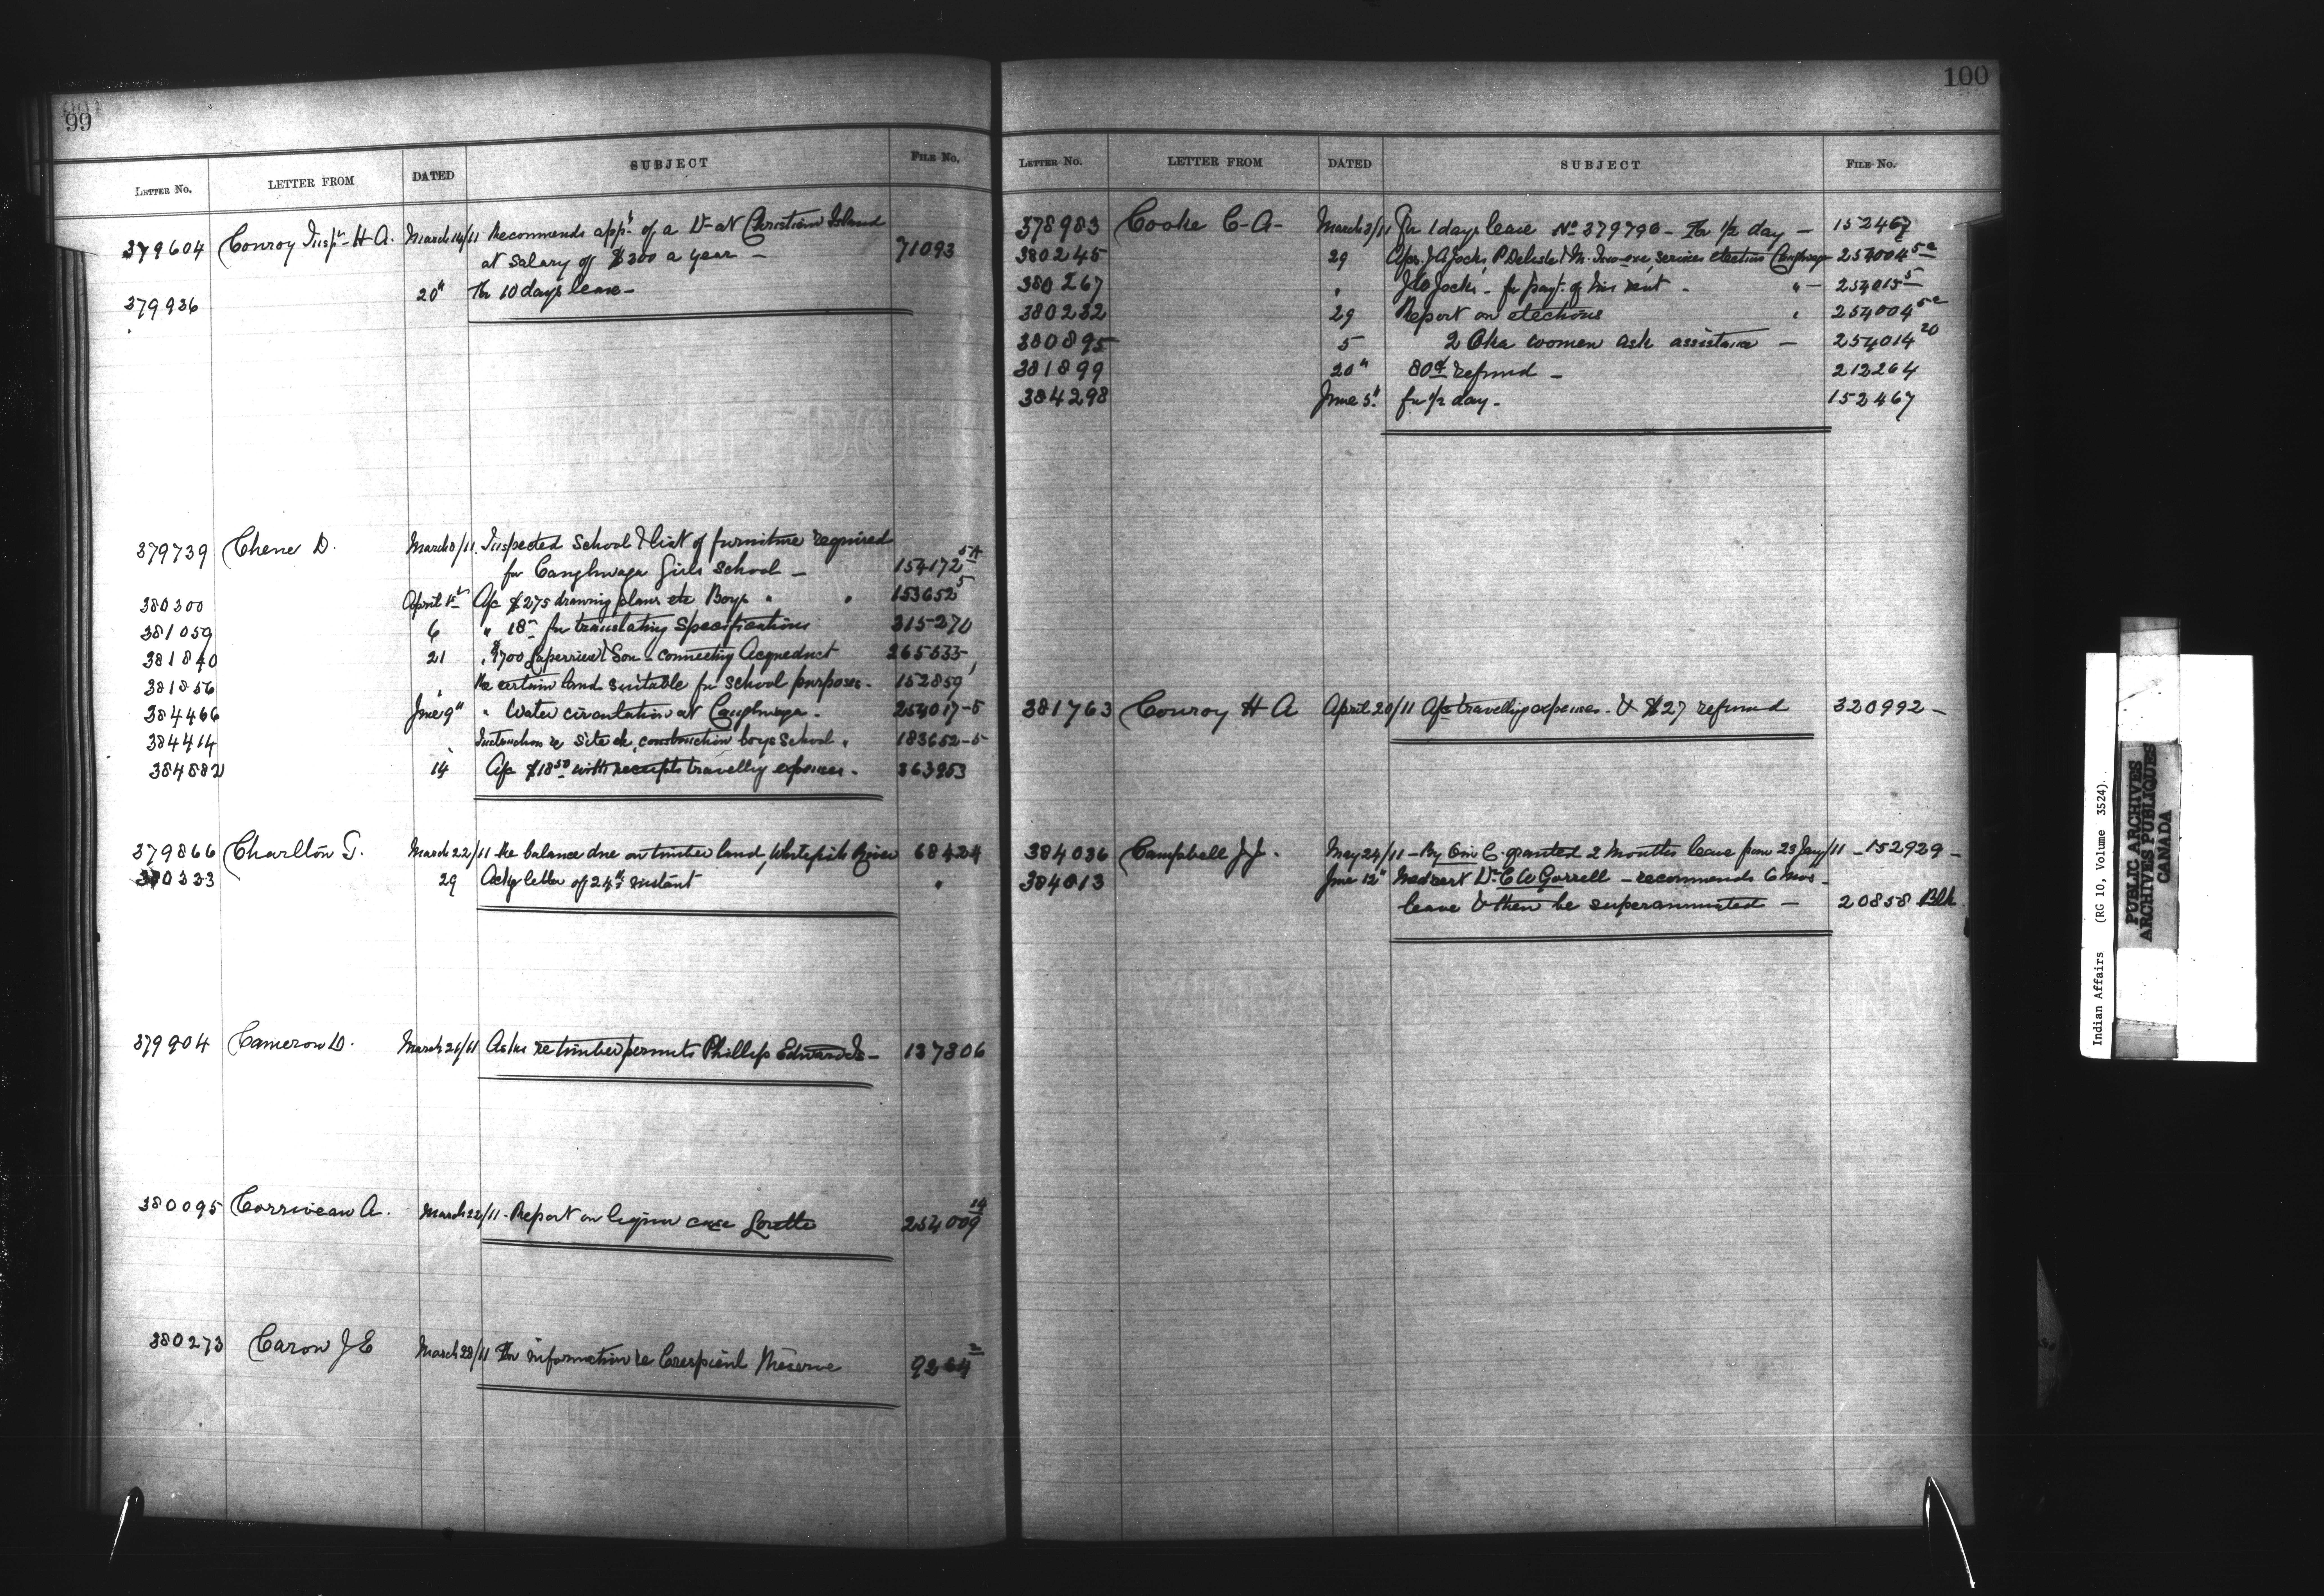 99
LETTER NO. LETTER FROM DATED SUBJECT FILE No.
379604 Conroy Inspr H A. March 14/11 Recommends appt of a Dr at Christian Island
at salary of $300 a year — 71093
379936 20" For 10 days leave —
379739 Chene D. March 8/11. Inspected School & list of furniture required
for Caughnawaga Girls School — 154172 5A
380300 April 1st Ap $275 drawing plans etc Boys " " 153652 5
381059 6 " 18 for translating Specifications 315270
381840 21 " $700 & Son - connecting Acqueduct 265533
381856 " Re certain land suitable for school purposes. 152859
384466 June 9" " Water circulation at Caughnawaga. 254017-5
384414 " Instruction re site &c, construction boys School " 183652-5
384582 14 Ap $18 50 with receipts travellg expenses. 363953
379866 Charlton G. March 22/11 Re balance due on timber land, Whitefish River 68424
380333 29 Ackg letter of 24th instant "
379904 Cameron D. March 21/11 Asks re timber permits Phillip Edwards — 137306
380095 Corriveau A. March 22/11 - Report on liquor case Lorette 254009 14
380273 Caron J E March 28/11 For information re Crespieul Reserve 9264 2
100
LETTER No. LETTER FROM DATED SUBJECT FILE No.
378983 Cooke C-A- March 3/11 For 1 days leave No 379790 - For 1/2 day — 152467
380245 29 Aps. J A Jocks, P Delisle & M. services election Caughnawaga 254004 5a
380267 " Jocks - for payt. of his rent - " — 254015 5
380232 29 Report on elections " 254004 5a
380895 5 2 Oka women ask assistance — 254014 20
381899 20" 80¢ refund — 212264
384298 June 5" for 1/2 day - 152467
381763 Conroy H A April 20/11 Ap travellg expenses - & $27 refund 320992 —
384036 Campbell J J. May 24/11 - By O in C. granted 2 months leave from 23 Jany/11 - 152929 —
384613 June 12" Med cert Dr. C W Gorrell - recommends 6 mos
leave & then be superannuated — 20858 Blk
Indian Affairs (RG 10, Volume 3524)
PUBLIC ARCHIVES
ARCHIVES PUBLIQUES
CANADA